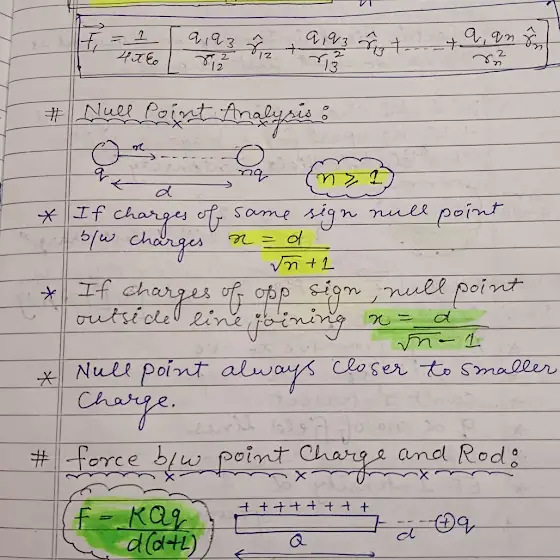 F₁ = 1/4πε₀ [ q₁q₃/r₁₂² r̂₁₂ + q₁q₃/r₁₃² r̂₁₃ + ...... + q₁qn/rn² r̂n ]
# Null Point Analysis :
x
q nq
d
n ≥ 1
* If charges of same sign null point
b/w charges x = d/√n + 1
* If charges of opp sign, null point
outside line joining x = d/√n - 1
* Null point always closer to smaller
Charge.
# force b/w point Charge and Rod :
F = KQq/d(d+L)
+ + + + + + + +
d + q
Q